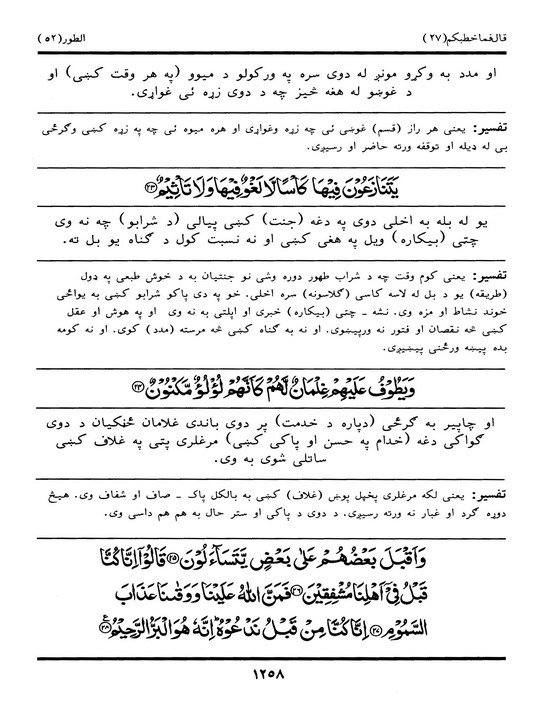 قال‌فماخطبکم(٢٧) الطور(٥٢)
او مدد به وکړو مونږ له دوی سره په ورکولو د میوو (په هر وقت کښی) او
د غوښو له هغه څیز چه د دوی زړه ئی غواړی.
تفسیر: یعنی هر راز (قسم) غوښی ئی چه زړه وغواړی او هره میوه ئی چه په زړه کښی وګرځی
بی له ډیله او توقفه ورته حاضر او رسیږی.
يَتَنَازَعُوْنَ فِيْهَا كَاْسًا لَّا لَغْوٌ فِيْهَا وَلَا تَاْثِيْمٌ ﴿٢٣﴾
یو له بله به اخلی دوی په دغه (جنت) کښی پیالی (د شرابو) چه نه وی
چتی (بیکاره) ویل په هغی کښی او نه نسبت کول د ګناه یو بل ته.
تفسیر: یعنی کوم وقت چه د شراب طهور دوره وشی نو جنتیان به د خوش طبعی په ډول
(طریقه) یو د بل له لاسه کاسی (ګلاسونه) سره اخلی. خو په دی پاکو شرابو کښی به یوائی
خوند نشاط او مزه وی. نشه ـ چتی (بیکاره) خبری او اپلتی به نه وی او په هوش او عقل
کښی څه نقصان او فتور نه ورپیښوی. او نه به ګناه کښی څه مرسته (مدد) کوی. او نه کومه
بده پیښه ورځنی پیښیږی.
وَيَطُوْفُ عَلَيْهِمْ غِلْمَانٌ لَّهُمْ كَاَنَّهُمْ لُؤْلُؤٌ مَّكْنُوْنٌ ﴿٢٤﴾
او چاپیر به ګرځی (دپاره د خدمت) پر دوی باندی غلامان څنګیان د دوی
ګواکی دغه (خدام په حسن او پاکی کښی) مرغلری پتی په غلاف کښی
ساتلی شوی به وی.
تفسیر: یعنی لکه مرغلری پخپل پوښ (غلاف) کښی به بالکل پاک ـ صاف او شفاف وی. هیڅ
دوړه ګرد او غبار نه ورته رسیږی. د دوی د پاکی او ستر حال به هم هم داسی وی.
وَاَقْبَلَ بَعْضُهُمْ عَلٰى بَعْضٍ يَّتَسَآءَلُوْنَ ﴿٢٥﴾ قَالُوْٓا اِنَّا كُنَّا
قَبْلُ فِيْٓ اَهْلِنَا مُشْفِقِيْنَ ﴿٢٦﴾ فَمَنَّ اللّٰهُ عَلَيْنَا وَوَقٰىنَا عَذَابَ
السَّمُوْمِ ﴿٢٧﴾ اِنَّا كُنَّا مِنْ قَبْلُ نَدْعُوْهُ اِنَّهٗ هُوَ الْبَرُّ الرَّحِيْمُ ﴿٢٨﴾
١٢٥٨